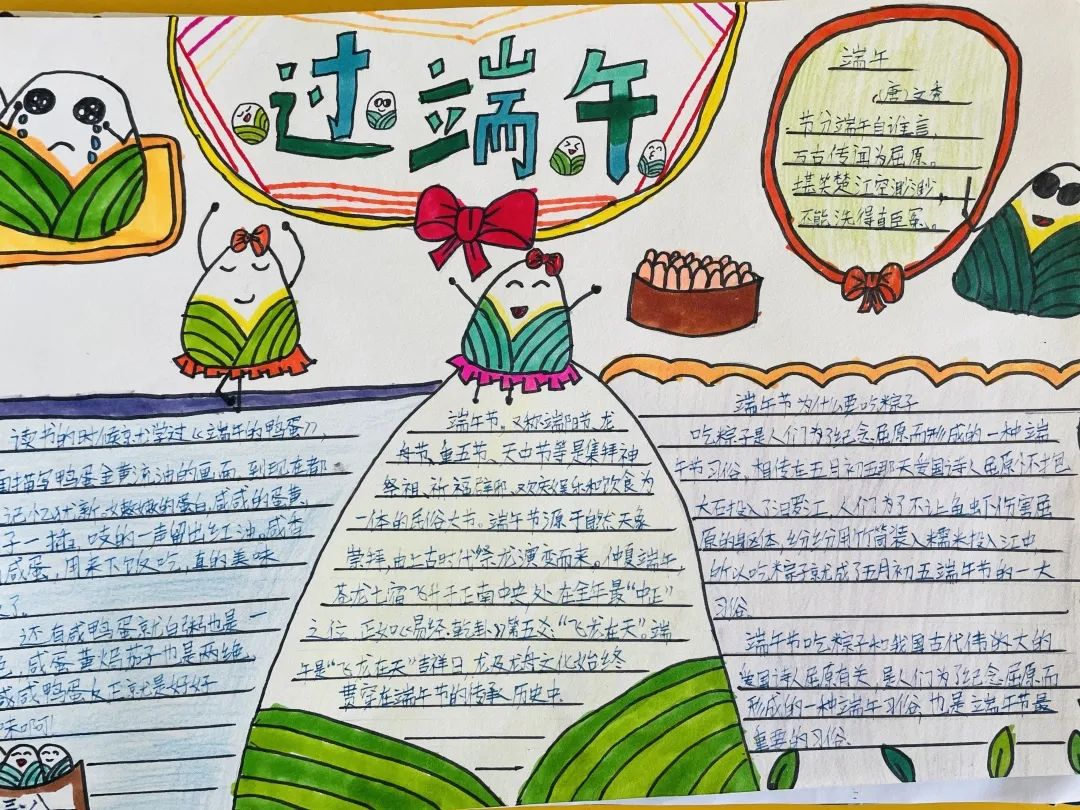 过端午
端午
(唐)文秀
节分端午自谁言,
万古传闻为屈原。
堪笑楚江空渺渺,
不能洗得直臣冤。
读书的时候就学过《端午的鸭蛋》,
描写鸭蛋金黄流油的画面,到现在都
记忆犹新,嫩嫩的蛋白,咸咸的蛋黄,
子一插,吱的一声冒出红油。咸香
咸蛋,用来下饭吃,真的美味
了。
还有咸鸭蛋就白粥也是一
,咸蛋黄焗茄子也是两绝
咸咸鸭蛋女王就是好好
味啊!
三、八
端午节。又称端阳节、龙
舟节、重五节、天中节等是集拜神
祭祖、祈福辟邪、欢庆娱乐和饮食为
一体的民俗大节。端午节源于自然天象
崇拜,由上古时代祭龙演变而来。仲夏端午
苍龙七宿飞升于正南中央,处在全年最“中正”
之位,正如《易经·乾卦》第五爻:“飞龙在天”。端
午是“飞龙在天”吉祥日,龙及龙舟文化始终
贯穿在端午节的传承历史中。
端午节为什么要吃粽子
吃粽子是人们为了纪念屈原而形成的一种端
午节习俗,相传在五月初五那天爱国诗人屈原怀抱
大石投入了汨罗江,人们为了不让鱼虾伤害屈
原的身体,纷纷用竹筒装入糯米投入江中
所以吃粽子就成了五月初五端午节的一大
习俗。
端午节吃粽子和我国古代伟大的
爱国诗人屈原有关,是人们为了纪念屈原而
形成的一种端午习俗,也是端午节最
重要的习俗。